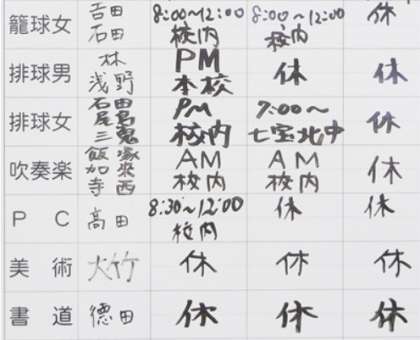 籠球女 吉田 8:00~12:00 8:00~12:00 休
石田 校内 校内
排球男 林 PM 休 休
浅野 本校
排球女 石田 PM 7:00~ 休
尾 校内 七宝北中
三鬼
吹奏楽 飯塚 AM AM 休
加 校内 校内
寺西
PC 高田 8:30~12:00 休 休
校内
美術 大竹 休 休 休
書道 德田 休 休 休